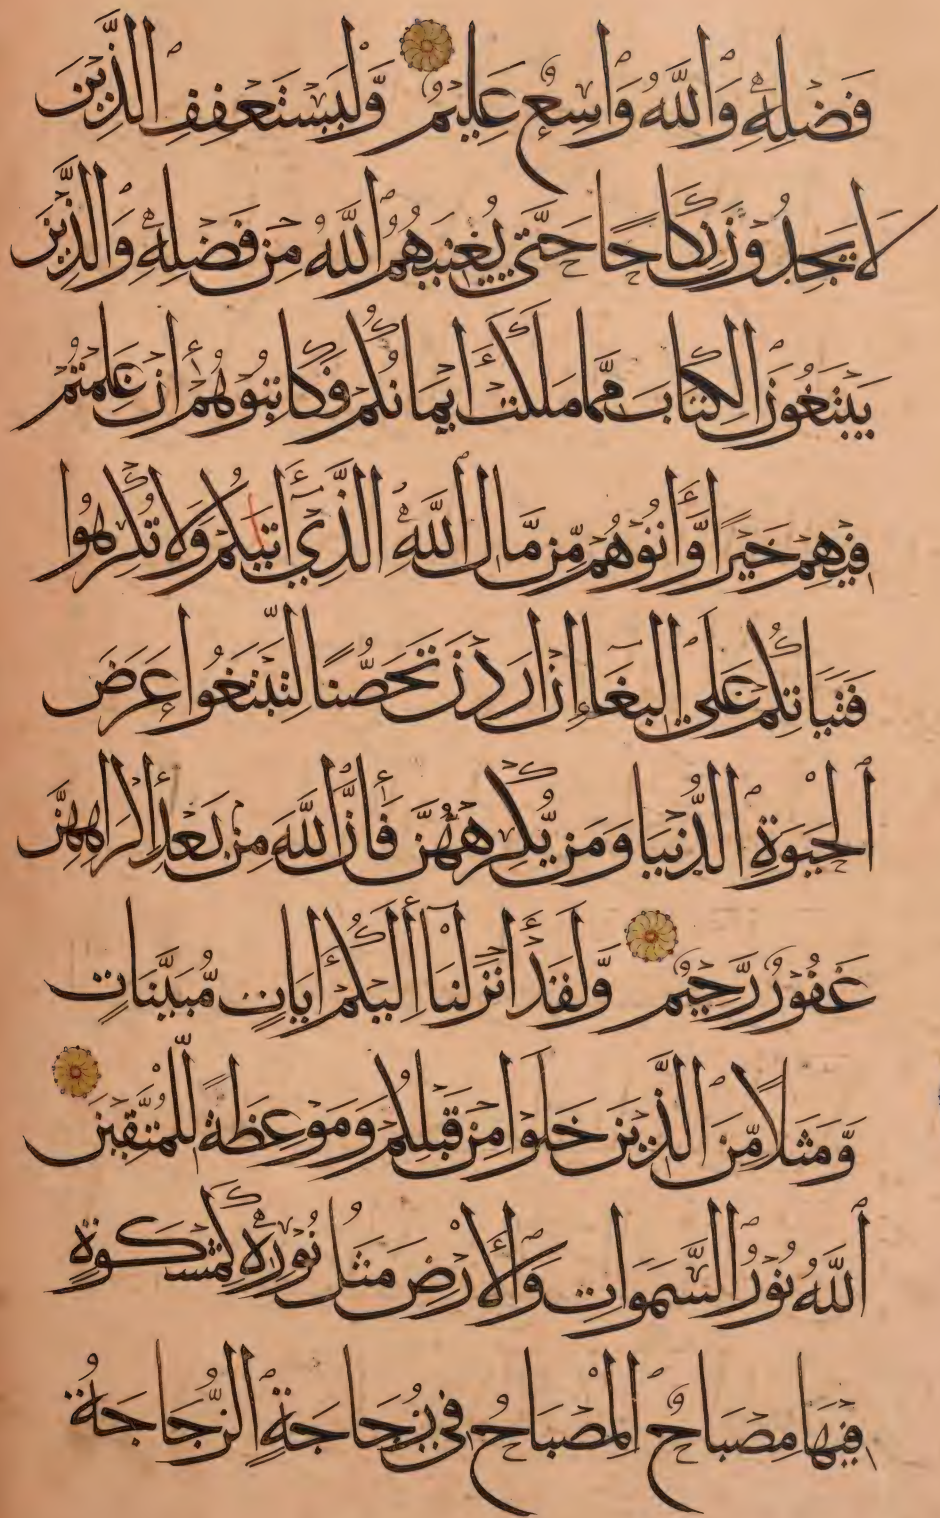 فَضْلِهِ وَاللَّهُ وَاسِعٌ عَلِيمٌ وَّلْيَسْتَعْفِفِ الَّذِينَ
لَا يَجِدُونَ نِكَاحًا حَتَّى يُغْنِيَهُمُ اللَّهُ مِنْ فَضْلِهِ وَالَّذِينَ
يَبْتَغُونَ الْكِتَابَ مِمَّا مَلَكَتْ أَيْمَانُكُمْ فَكَاتِبُوهُمْ أِنْ عَلِمْتُمْ
فِيهِمْ خَيْرًا وَّأَتُوهُمْ مِّنْ مَّالِ اللَّهِ الَّذِي أَتَيكُمْ وَلَا تُكْرِهُوا
فَتَيَاتِكُمْ عَلَى الْبِغَاءِ إِنْ ارَدْنَ تَحَصُّنًا لِّتَبْتَغُوا عَرَضَ
الْحَيَوةِ الدُّنْيَا وَمَنْ يُّكْرِهْهُنَّ فَأِنَّ اللَّهَ مِنْ بَعْدِ إِكْرَاهِهِنَّ
غَفُورٌ رَّحِيمٌ وَّلَقَدْ أَنْزَلْنَا أِلَيْكُمْ أَيَاتٍ مُّبَيِّنَاتٍ
وَّمَثَلًا مِّنَ الَّذِينَ خَلَوْا مِنْ قَبْلِكُمْ وَمَوْعِظَةً لِّلْمُتَّقِينَ
اللَّهُ نُورُ السَّمَوَاتِ وَالْأَرْضِ مَثَلُ نُورِهِ كَمِشْكَوةٍ
فِيهَا مِصْبَاحٌ الْمِصْبَاحُ فِي زُجَاجَةٍ الزُّجَاجَةُ